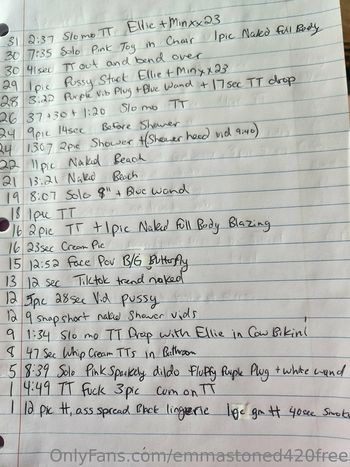 31 2:37 Slo mo TT Ellie + Minxx23
30 7:35 Solo Pink Toy in Chair 1pic Naked Full Body
30 41sec TT out and bend over
29 1 pic Pussy Stack Ellie + Minxx23
28 3:22 Purple Vib Plug + Blue Wand + 17 sec TT drop
26 37 + 30 + 1:20 Slo mo TT
24 9pic 14sec Before Shower
24 13:07 2pic Shower + (Shower head vid 9:40)
22 11 pic Naked Beach
21 13:21 Naked Beach
19 8:07 Solo 8" + Blue wand
18 1 pic TT
16 2 pic TT + 1 pic Naked Full Body Blazing
16 23sec Cream Pie
15 12:52 Face Pov B/G Butterfly
13 12 sec Tiktok trend naked
12 5pic 28sec Vid pussy
12 9 snap short naked Shower vids
9 1:34 Slo mo TT Drop with Ellie in Cow Bikini
8 47 Sec Whip Cream TTs in Bathroom
5 8:39 Solo Pink Sparkely dildo Fluffy Purple Plug + white wand
1 4:49 TT Fuck 3pic Cum on TT
1 12 pic tt, ass spread Black lingerie 40sec Smoke
OnlyFans.com/emmastoned420free